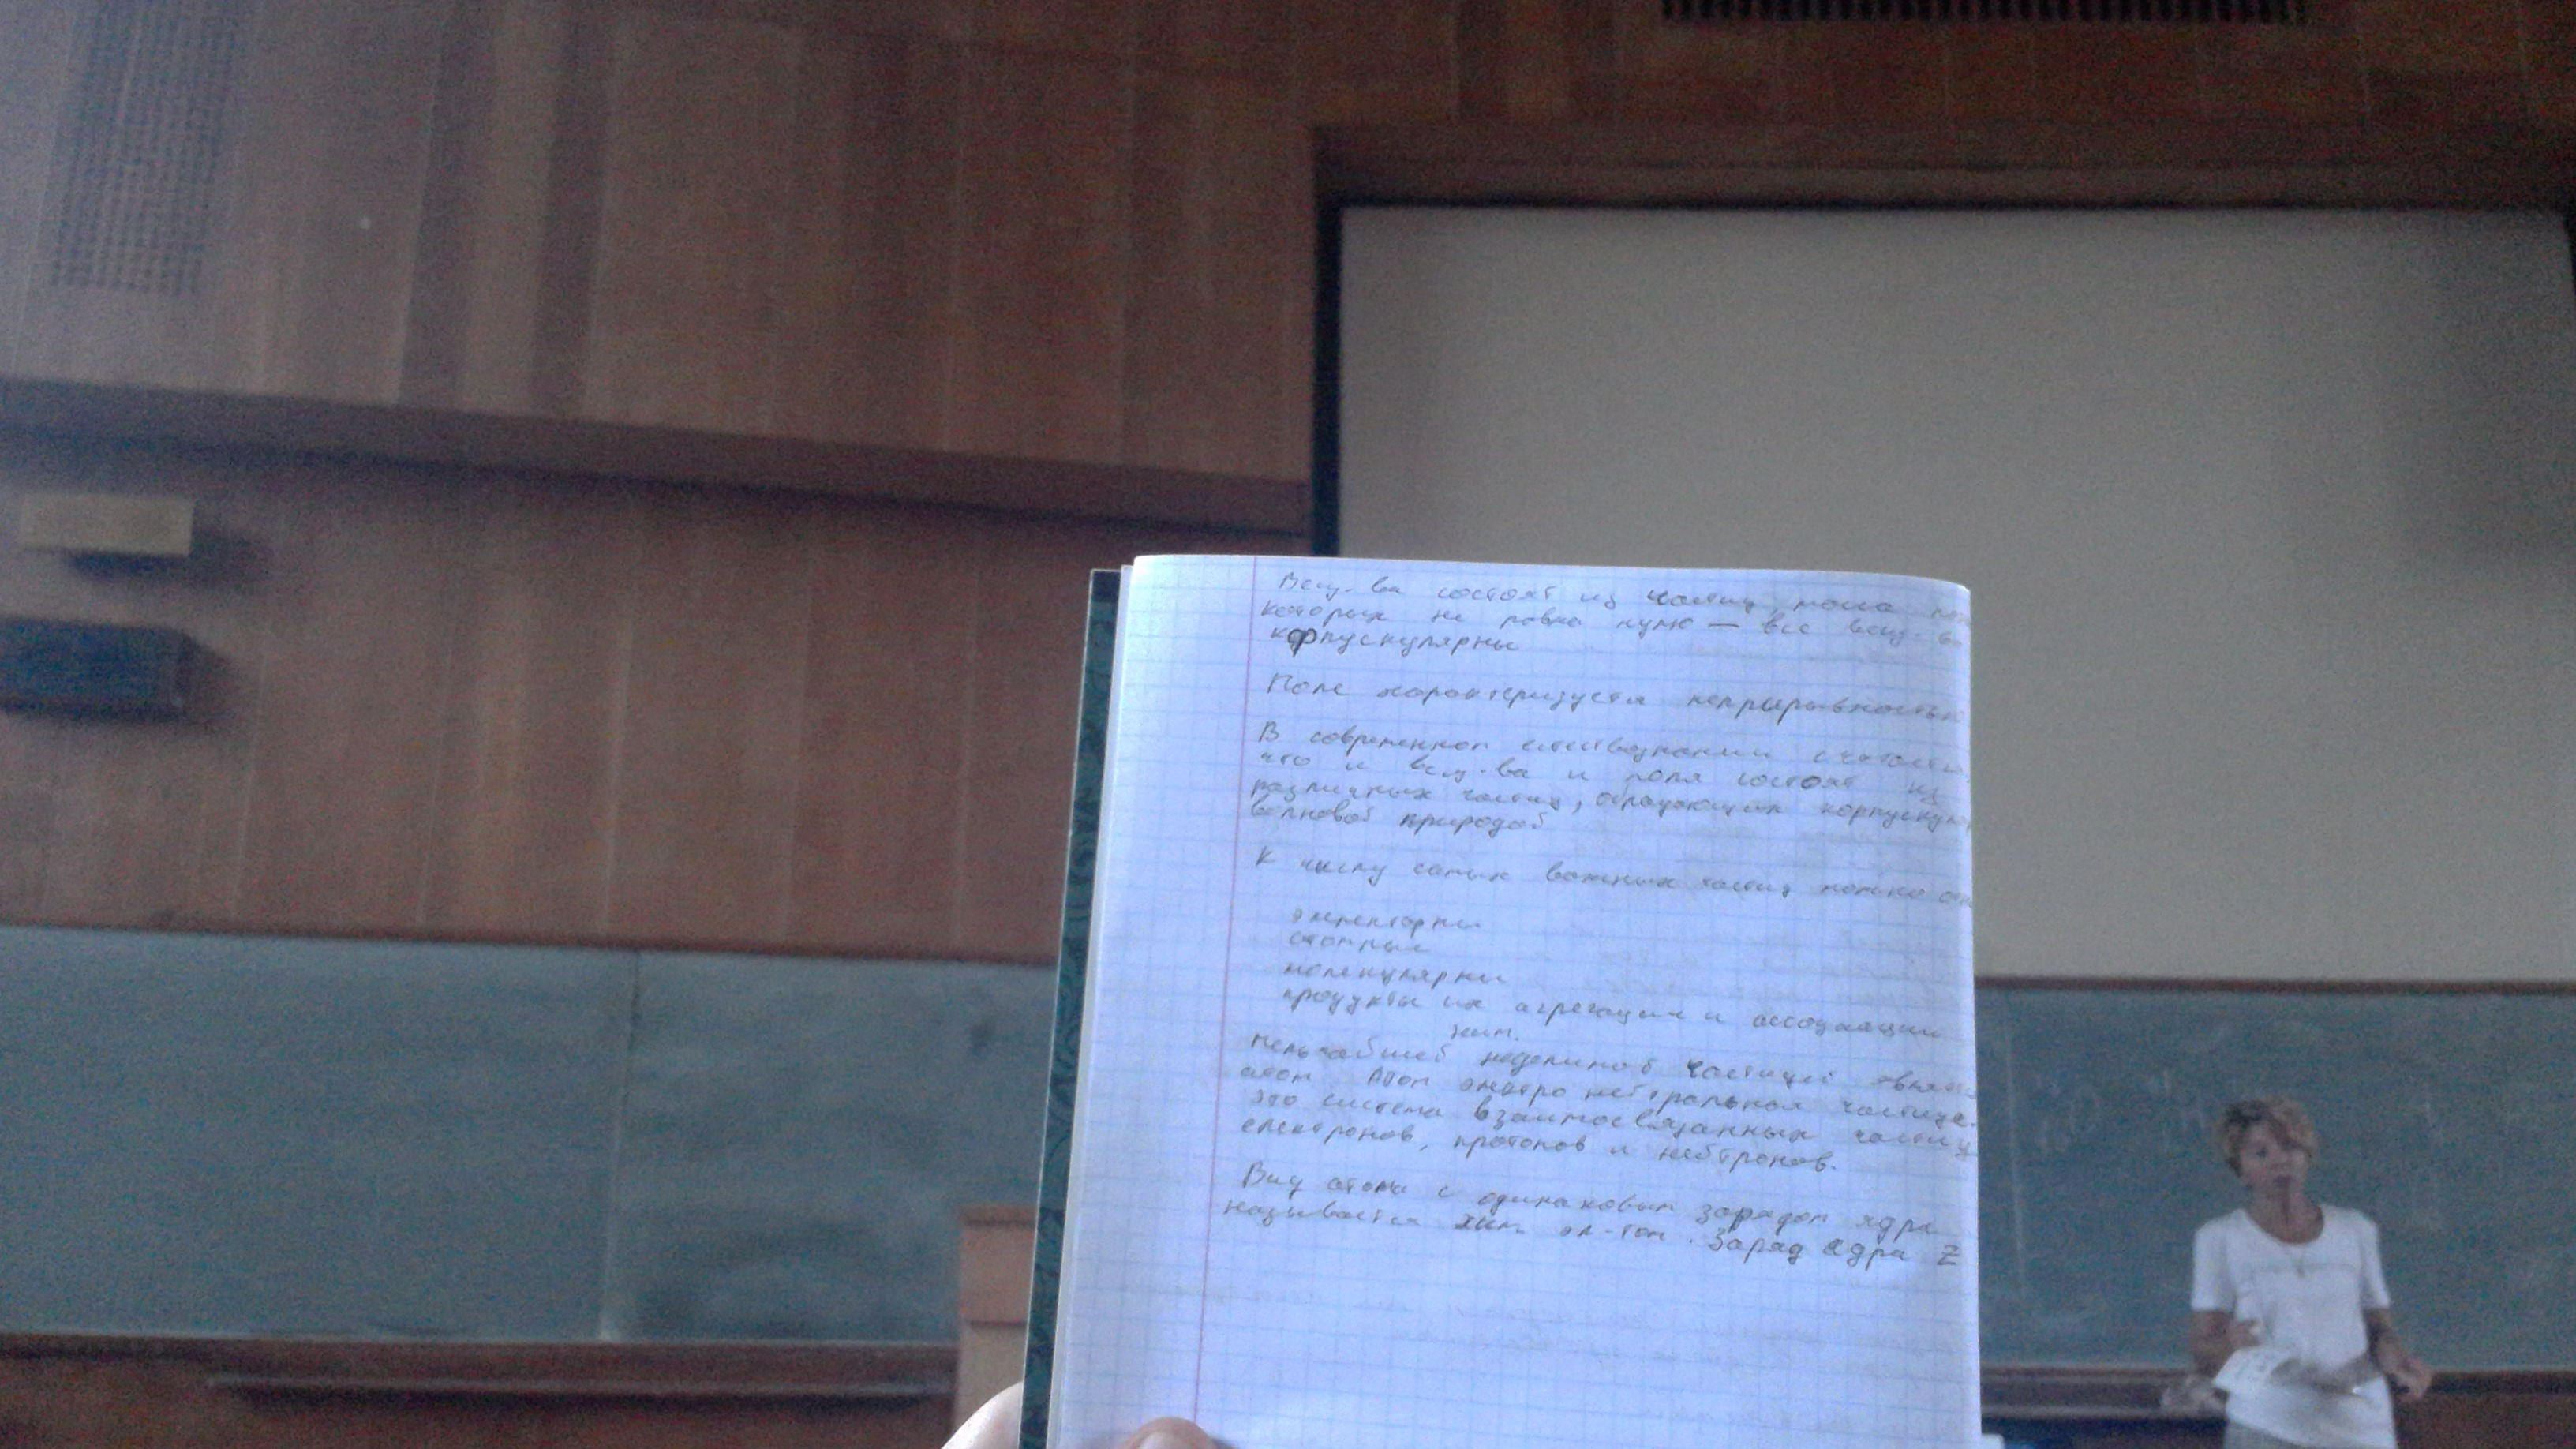 Вещ-ва состоят из частиц, масса
которых не равна нулю — все вещ-в
корпускулярны
Поле характеризуется непрырывностью
В современном естествознании считается
что и вещ-ва и поля состоят из
различных частиц, корпускул
волновой природой
К числу самых важных частиц можно
элементарны
атомные
молекулярны
продукты их агрегации и ассоциации
хим.
мельчайшей неделимой частицей являет
атом Атом электро нейтральная частица.
это система взаимосвязанных частиц
електронов, протонов и нейтронов.
Вид атома с одинаковым зарядом ядра
называется хим эл-том. Заряд ядра Z